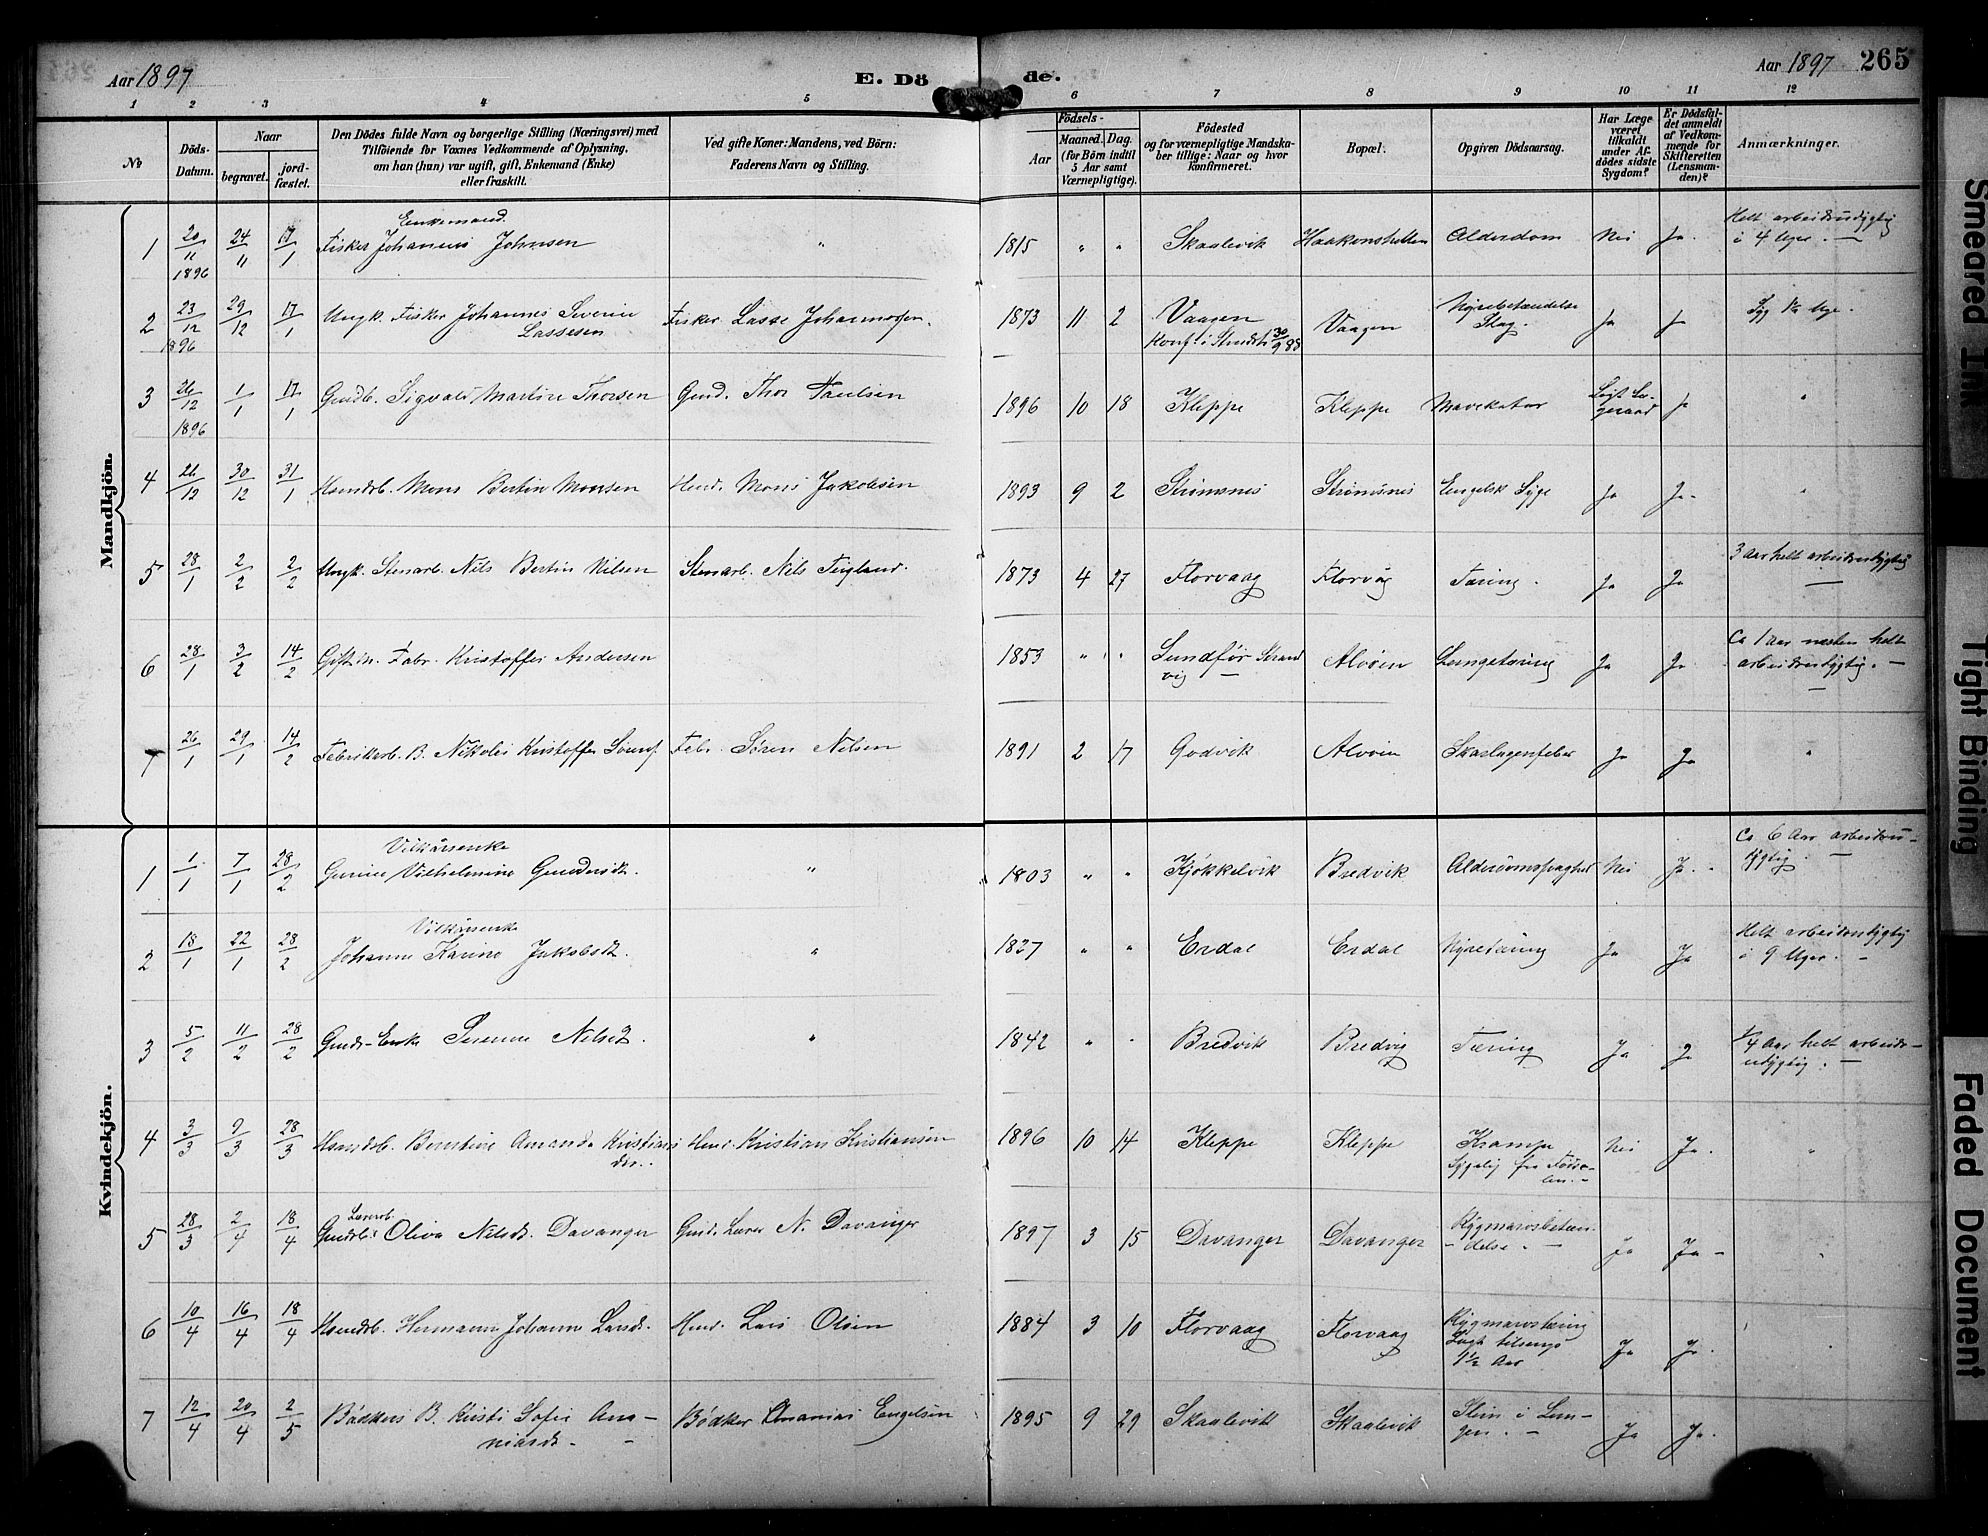 Aar 1897
E. Dö de.
Aar 1897 265
1 2 3 4 5 6 7 8 9 10 11 12
No
Döds-Datum.
Naar
begravet.
jord-fæstet.
Den Dödes fulde Navn og borgerlige Stilling (Næringsvei) med
Tilföiende for Voxnes Vedkommende af Oplysning,
om han (hun) var ugift, gift, Enkemand (Enke)
eller fraskilt.
Ved gifte Koner: Mandens, ved Börn:
Faderens Navn og Stilling.
Födsels-
Aar
Maaned. Dag.
(for Börn indtil
5 Aar samt
Værnepligtige).
Födested
og for værnepligtige Mandska-
ber tillige: Naar og hvor
konfirmeret.
Bopæl.
Opgiven Dödsaarsag.
Har Læge
været
tilkaldt
under Af-
dödes sidste
Sygdom?
Er Dödsfal-
det anmeldt
af Vedkom-
mende for
Skifteretten
(Lensman-
den)?
Anmærkninger.
Mandkjön.
1 20/11 1896 24/11 17/1 Enkemand. Fisker Johannes Johnsen " 1815 " " Skaalevik Haakonshellen Alderdom Nei Ja. Helt arbeidsudygtig
i 4 Uger. —
2 23/12 1896 29/12 17/1 Ungk. Fisker Johannes Severin
Lassesen Fisker Lasse Johannesen. 1873 11 2 Vaagen
Konf. i 30/9 88 Vaagen Nyrebetændelse
Slag. Ja Ja Syg Uge.
3 26/12 1896 1/1 17/1 Gmdb. Sigvald Martin Thorsen Gmd. Thor Paulsen 1896 10 18 Kleppe Kleppe Mavekatar Ja "
4 26/12 30/12 31/1 Hsmdsb. Mons Bertin Monsen Hmd. Mons Jakobsen 1893 9 2 Strømsnes Strømsnes Engelsk Syge Ja Ja- "
5 28/1 2/2 2/2 Ungk. Stenarb. Nils Bertin Nilsen Stenarb. Nils Fugland. 1873 4 27 Florvaag Florvåg Tæring. Ja Ja 3 Aar helt arbeidsudygtig
—
6 28/1 3/2 14/2 Gift m. Fabr. Kristoffer Andersen 1853 " " Sundfør Strand
vig — Alvøen Lungetæring Ja Ja Ca 1 Aar næsten helt
arbeidsudygtig. —
7 26/1 29/1 14/2 Fabrikarb. B. Nikolai Kristoffer Sørens. Fabr. Søren Nilsen 1891 2 17 Godvik Alvøen Skarlagensfeber Ja Ja "
Kvindekjön.
1 1/1 7/1 28/2 Vilkårsenke
Gurine Vilhelmine Gundersdt. " 1803 " " Kjøkkelvik Bredvik Alderdomssvaghed Nei Ja. Ca 6 Aar arbeidsu-
dygtig. —
2 18/1 22/1 28/2 Vilkårsenke
Johanne Karine Jakobsdt. " 1827 " " Erdal Erdal Nyretæring Ja Ja Helt arbeidsudygtig
i 9 Uger. -
3 5/2 11/2 28/2 Gmds-Enke Serenne Nilsd. " 1842 " " Bredvik Bredvig Tæring Ja Ja 1/4 Aar helt arbeids-
udygtig. —
4 3/3 9/3 28/3 Hsmdsb. Berntine Amanda Kristians
dtr. Hmd. Kristian Kristiansen 1896 10 14 Kleppe Kleppe Krampe
Sygelig fra Fødse-
len. Nei Ja. "
5 28/3 2/4 18/4 Lærerb.
Gmdsb. Oliva Nilsdt. Davanger Gmd. Lærer N. Davanger 1897 3 15 Davanger Davanger Rygmarvsbetæn-
delse. — Ja Ja - "
6 10/4 16/4 18/4 Hsmdsb. Hermann Johanne Larsdt. Hmd. Lars Olsen 1884 3 10 Florvaag Florvaag Rygmarvstæring
Ligt tilsengs
1½ Aar Ja Ja. "
7 12/4 20/4 2/5 Bødkers B. Kirsti Sofie Ana-
niasdt. - Bødker Ananias Engelsen 1895 9 29 Skaalevik Skaalevik Slim i Lun-
gen. — Ja Ja.
Smeared Ink
Tight Binding
Faded Document